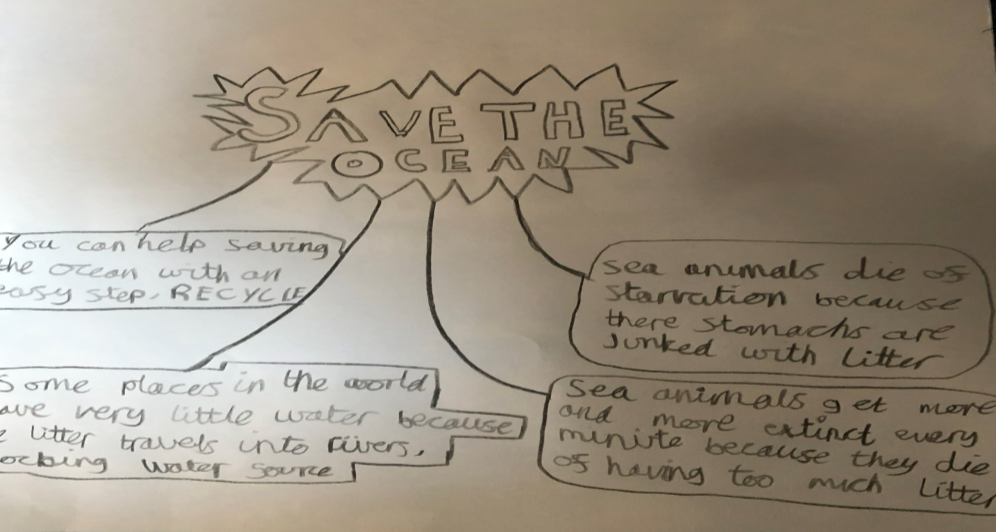 SAVE THE
OCEAN
you can help saving
the ocean with an
easy step. RECYCLE
Some places in the world
ave very little water because
litter travels into rivers,
ocking water source
sea animals die of
starvation because
there stomachs are
junked with litter
sea animals get more
and more extinct every
minite because they die
of having too much litter